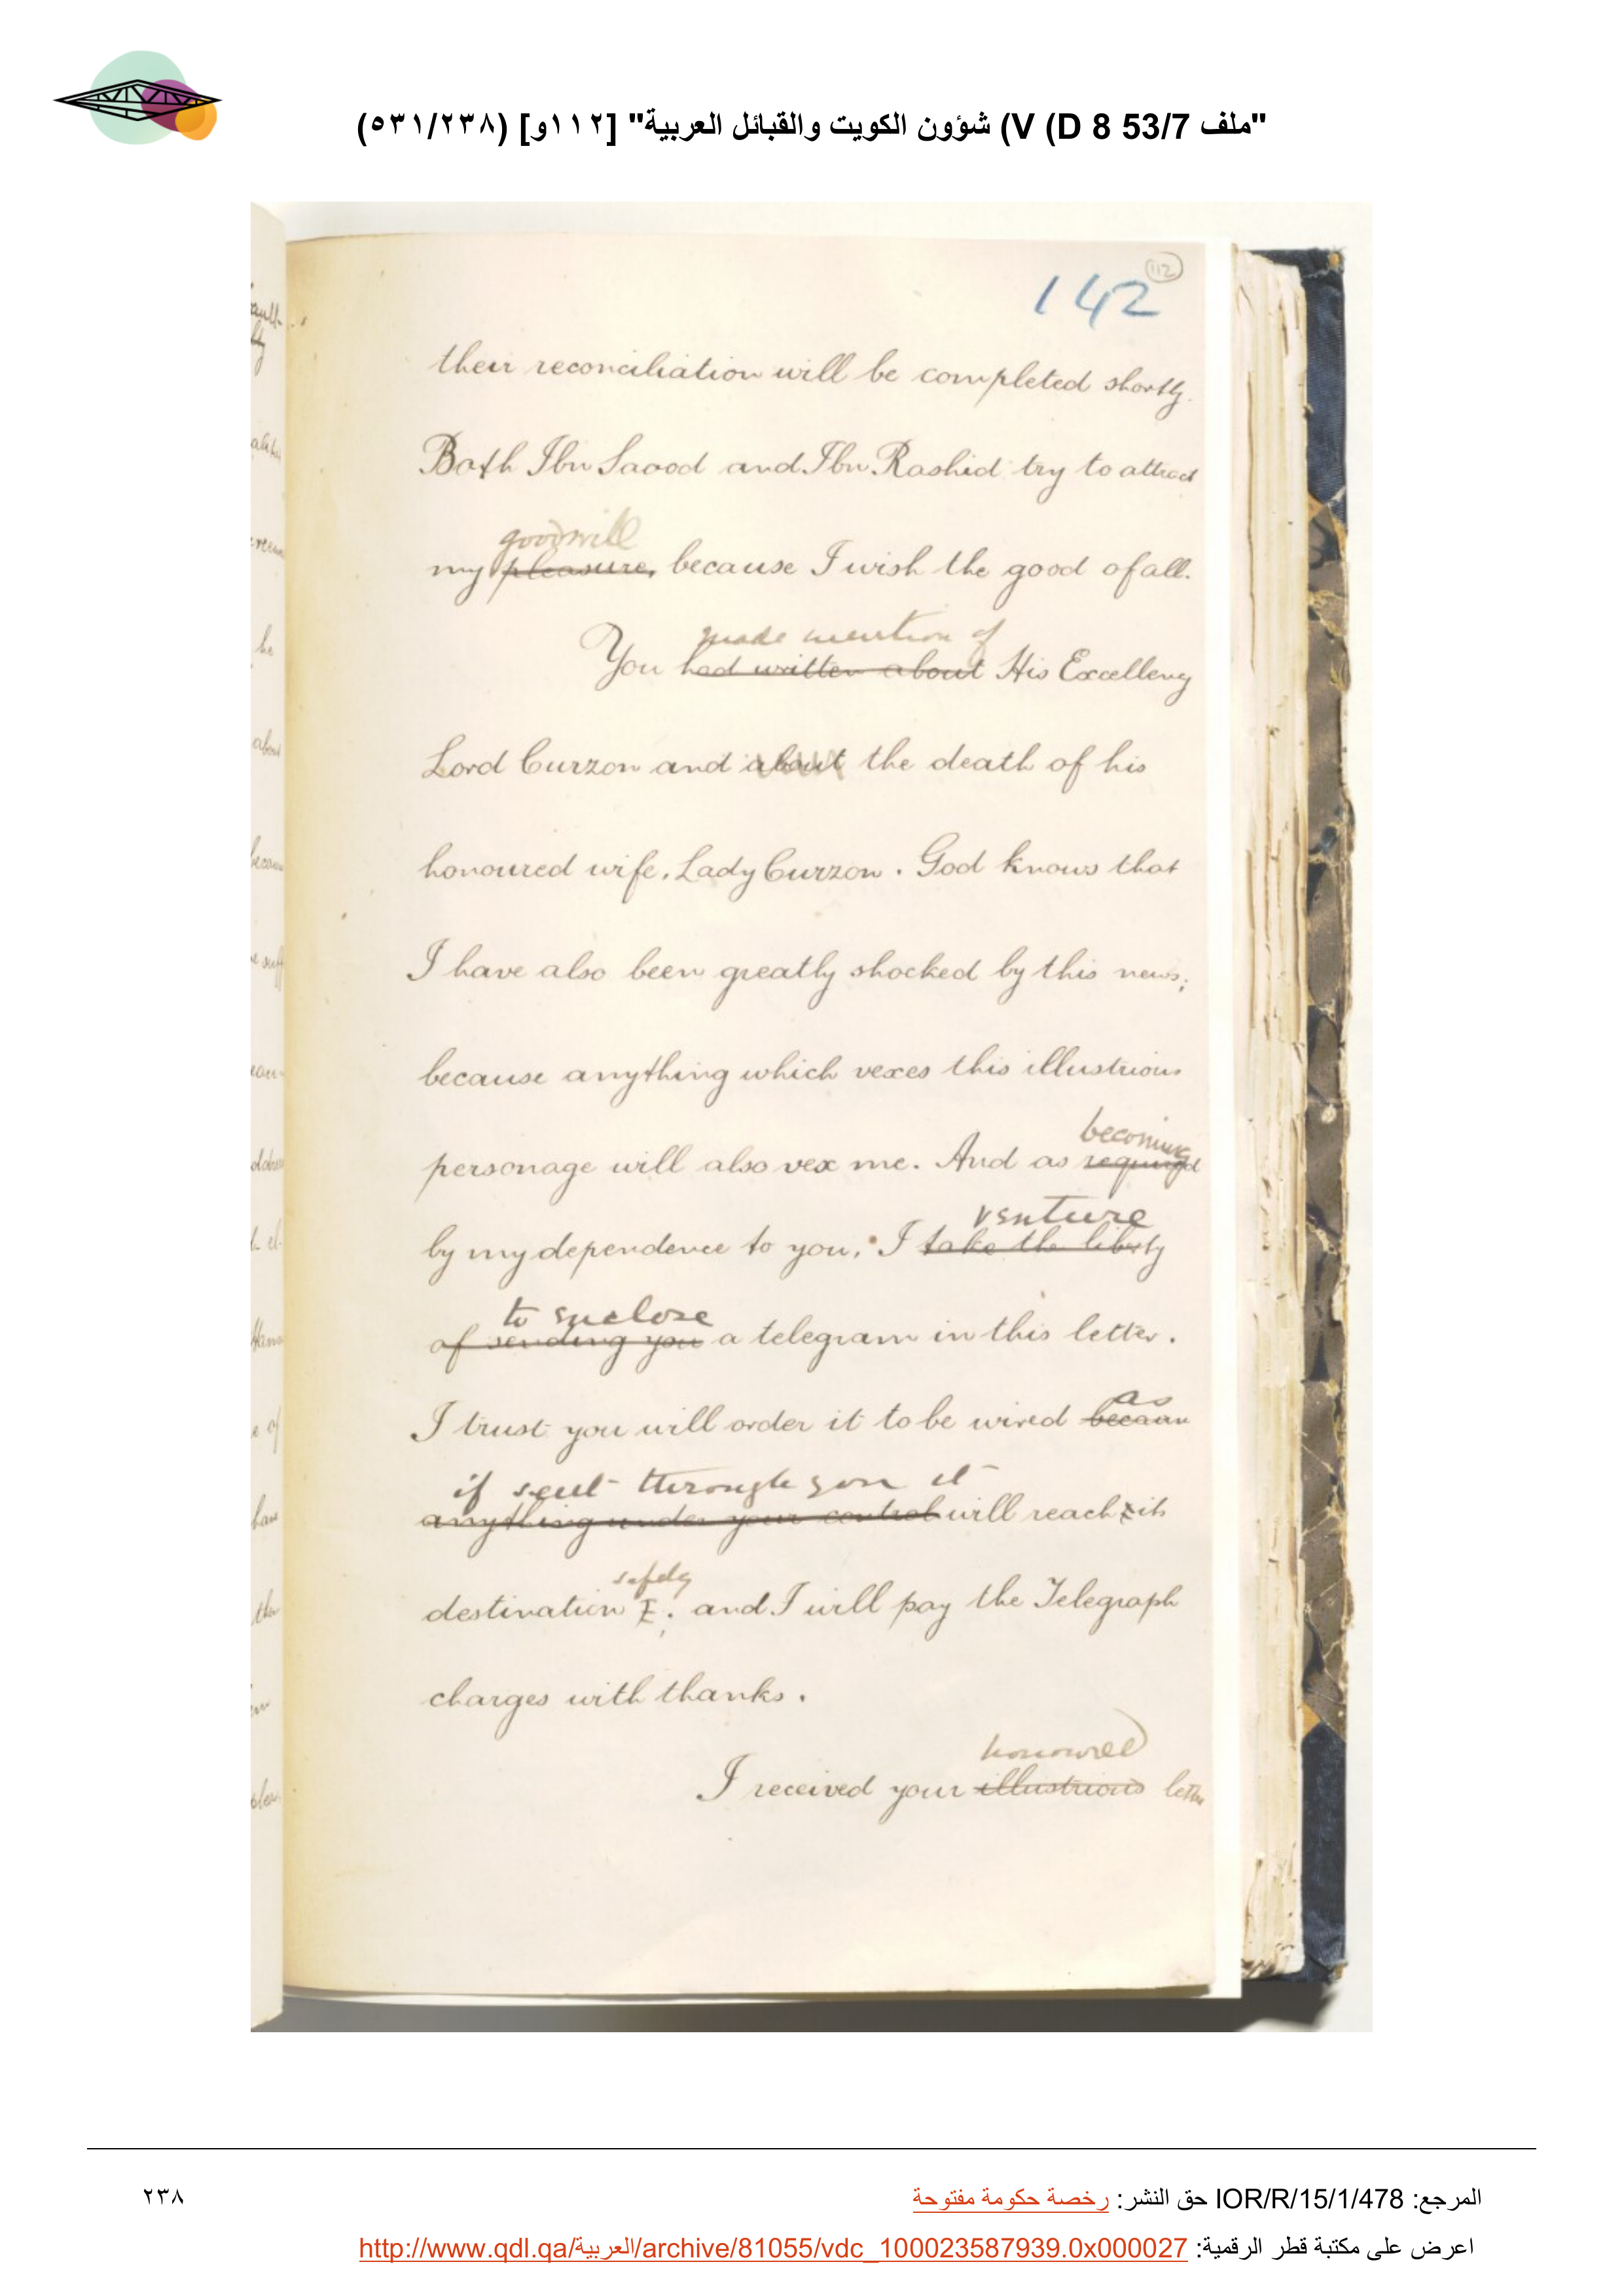 "ملف 53/7 V (D 8) شؤون الكويت والقبائل العربية" [١١٢و] (٥٣١/٢٣٨)
112
142
their reconciliation will be completed shortly.
Both Ibn Saood and Ibn Rashid try to attract
goodwill
my pleasure, because I wish the good of all.
made mention of
You had written about His Excellency
Lord Curzon and about the death of his
honoured wife, Lady Curzon. God knows that
I have also been greatly shocked by this news;
because anything which vexes this illustrious
becoming
personage will also vex me. And as required
venture
by my dependence to you, I take the liberty
to enclose
of sending you a telegram in this letter.
as
I trust you will order it to be wired because
if sent through you it
anything under your control will reach its
safely
destination and I will pay the Telegraph
charges with thanks.
honoured
I received your illustrious letter
المرجع: IOR/R/15/1/478 حق النشر: رخصة حكومة مفتوحة
٢٣٨
اعرض على مكتبة قطر الرقمية: http://www.qdl.qa/العربية/archive/81055/vdc_100023587939.0x000027